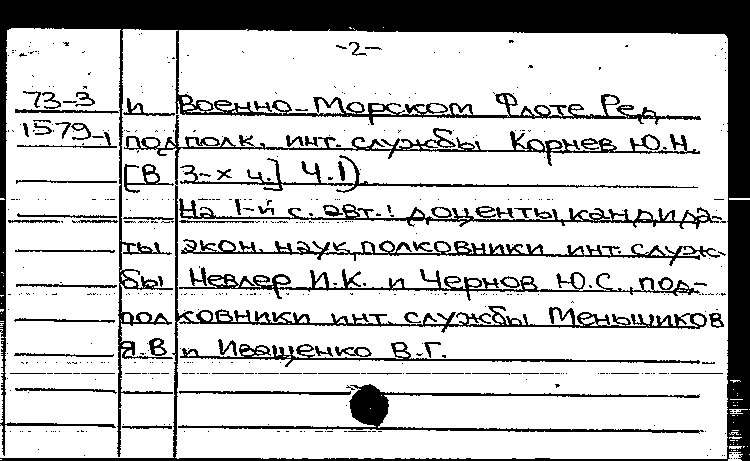 -2-
73-3 и Военно-Морском Флоте. Ред.
1579-1 подполк. инт. службы Корнев Ю.Н.
[В 3-х ч.] Ч.1).
На 1-й с. авт.: доценты, кандида-
ты экон. наук, полковники инт. служ-
бы Невлер И.К. и Чернов Ю.С., под-
полковники инт. службы Меньшиков
Я.В. и Иващенко В.Г.